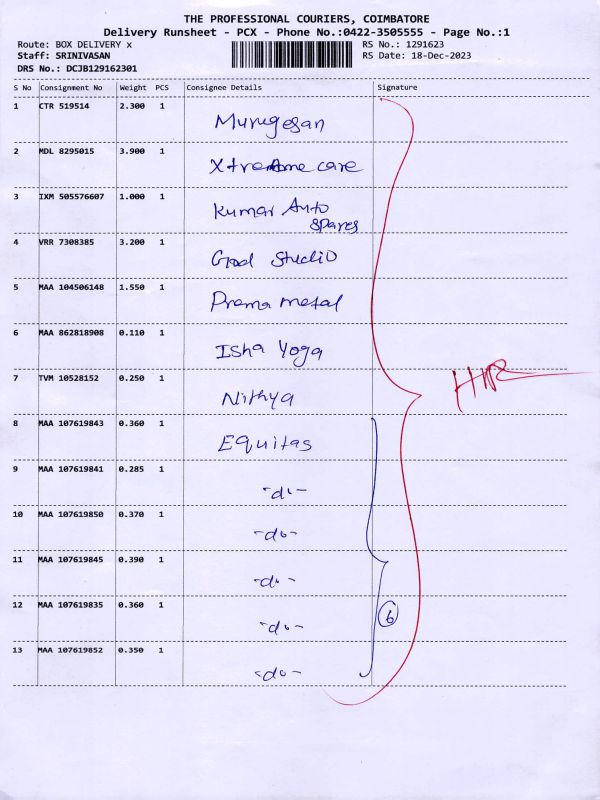 THE PROFESSIONAL COURIERS, COIMBATORE
Delivery Runsheet - PCX - Phone No.:0422-3505555 - Page No.:1
Route: BOX DELIVERY x RS No.: 1291623
Staff: SRINIVASAN RS Date: 18-Dec-2023
DRS No.: DCJB129162301
S No Consignment No Weight PCS Consignee Details Signature
1 CTR 519514 2.300 1 Murugesan
2 MDL 8295015 3.900 1 Xtreme care
3 IXM 505576607 1.000 1 Kumar Auto
spares
4 VRR 7308385 3.200 1 God Studio
5 MAA 104506148 1.550 1 Prema metal
6 MAA 862818908 0.110 1 Isha Yoga
7 TVM 10528152 0.250 1 Nithya
8 MAA 107619843 0.360 1 Equitas
9 MAA 107619841 0.285 1 -do-
10 MAA 107619850 0.370 1 -do-
11 MAA 107619845 0.390 1 -do-
12 MAA 107619835 0.360 1 -do- 6
13 MAA 107619852 0.350 1 -do-